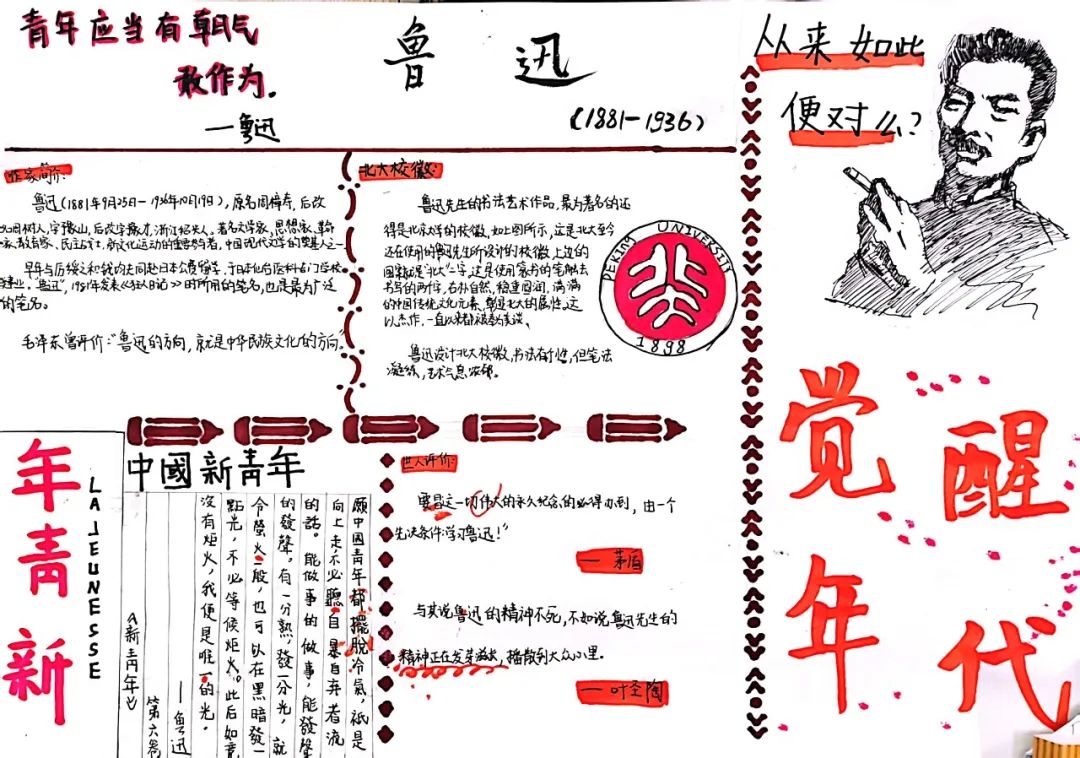 青年应当有朝气
敢作为.
—鲁迅
鲁迅
(1881-1936)
从来如此
便对么?
作家简介:
鲁迅(1881年9月25日-1936年10月19日),原名周樟寿,后改
名周树人,字豫山,后改字豫才,浙江绍兴人。著名文学家、思想家、革命
家、教育家、民主战士,新文化运动的重要参与者,中国现代文学的奠基人之一
早年与厉绥之和钱均夫同赴日本公费留学,于日本仙台医科专门学校
"鲁迅",1918年发表《狂人日记》时所用的笔名,也是最为广泛
的笔名。
毛泽东曾评价:"鲁迅的方向,就是中华民族文化的方向"
北大校徽:
鲁迅先生的书法艺术作品,最为著名的还
得是北京大学的校徽,如上图所示,这是北大至今
还在使用的鲁迅先生所设计的校徽,上边的
图案就是"北大"二字,这是使用篆书的笔触去
书写的两个字,古朴自然,稳重圆润,满满
的中国传统文化元素,彰显北大的属性。这
以杰作,一直以来都被奉为美谈、
鲁迅设计北大校徽,书法有个性,但笔法
凝练,艺术气息浓郁。
PEKING UNIVERSITY
1898
年青新
LA JEUNESSE
中國新青年
願中國青年都擺脫冷氣,祗是
向上走,不必聽自暴自弃者流
的話。能做事的做事,能發聲
的發聲。有一分熱,發一分光,就
令螢火一般,也可以在黑暗發一
點光,不必等候炬火。此后如竟
沒有炬火,我便是唯一的光。
—鲁迅
第六卷
《新青年》
世人评价:
要冒这一切伟大的永久纪念的必得办到,由一个
先决条件:学习鲁迅!"
—茅盾
与其说鲁迅的精神不死,不如说鲁迅先生的
精神正在发芽滋长,播散到大众心里。
—叶圣陶
觉醒
年代